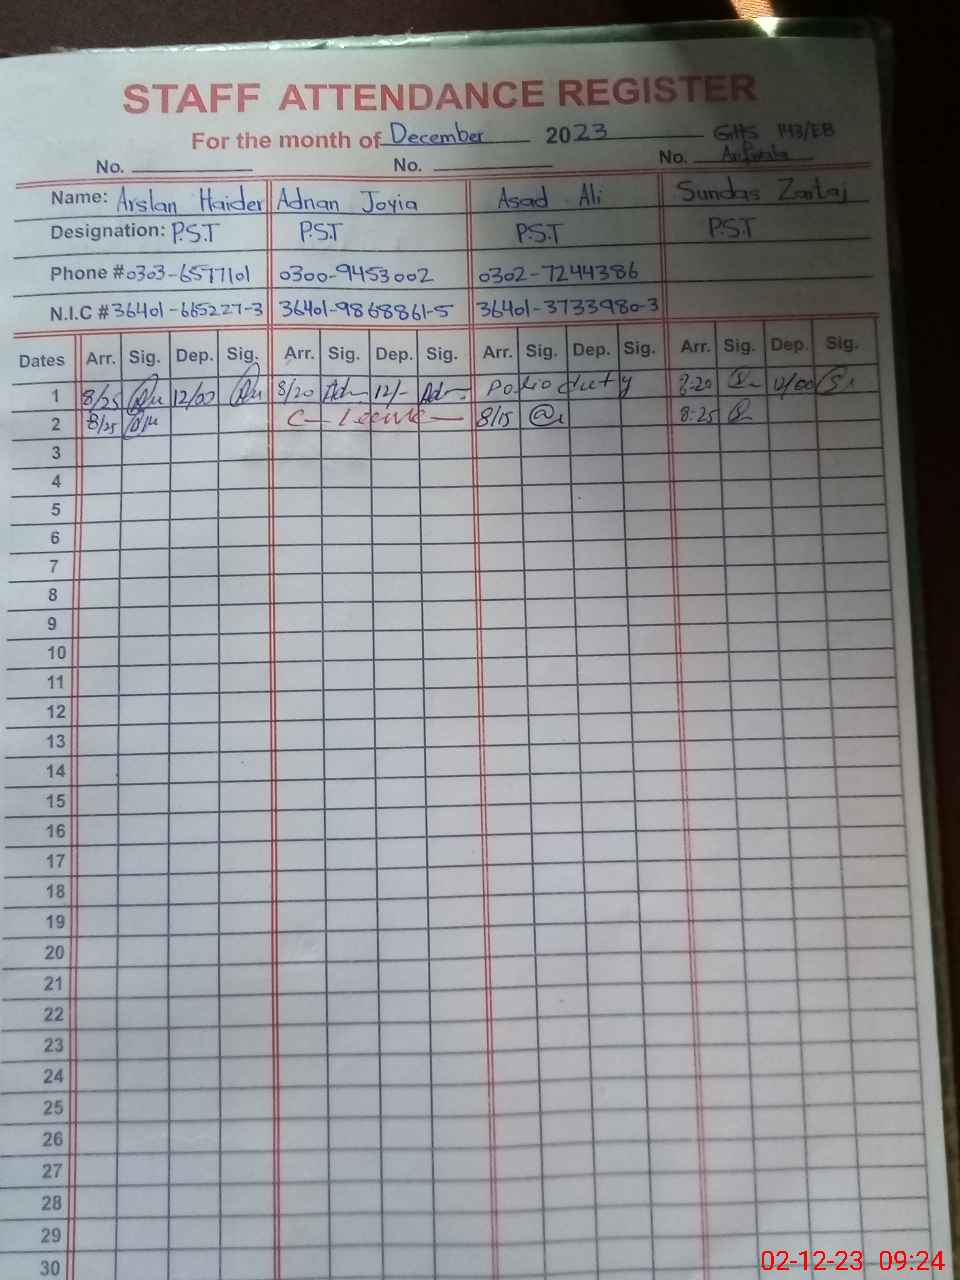 STAFF ATTENDANCE REGISTER
For the month of December 2023 GHS 143/EB
No. No. No. Arifwala
Name: Arslan Haider Adnan Joyia Asad Ali Sundas Zartaj
Designation: P.S.T P.S.T P.S.T P.S.T
Phone # 0303-6577101 0300-9453002 0302-7244386
N.I.C # 36401-665227-3 36401-9868861-5 36401-3733980-3
Dates Arr. Sig. Dep. Sig. Arr. Sig. Dep. Sig. Arr. Sig. Dep. Sig. Arr. Sig. Dep. Sig.
1 8/25 12/00 8/20 12/- Polio duty 8-20 12/00
2 8/25 C- Leave 8/15 8-25
3
4
5
6
7
8
9
10
11
12
13
14
15
16
17
18
19
20
21
22
23
24
25
26
27
28
29
30
02-12-23 09:24